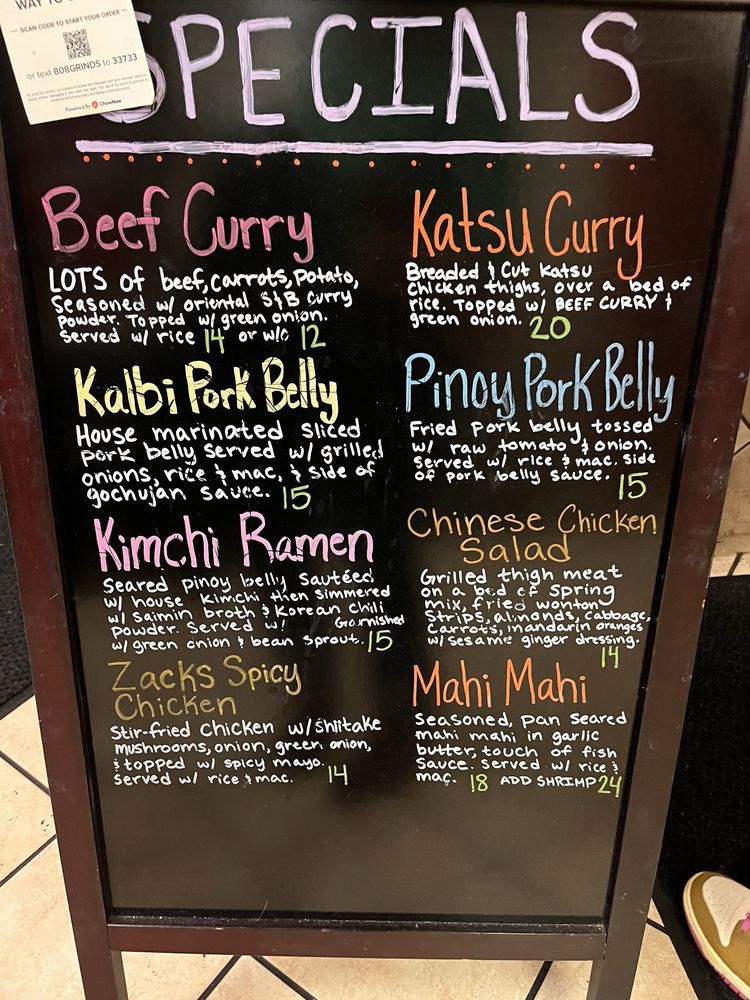 WAY TO
SCAN CODE TO START YOUR ORDER
or text 808GRINDS to 33733
Powered By ChowNow
SPECIALS
Beef Curry
LOTS of beef, carrots, Potato,
Seasoned w/ oriental S&B Curry
Powder. Topped w/ green onion.
Served w/ rice 14 or w/o 12
Kalbi Pork Belly
House marinated Sliced
pork belly served w/ grilled
onions, rice & mac, & side of
gochujan sauce. 15
Kimchi Ramen
Seared pinoy belly Sautéed
w/ house Kimchi then simmered
w/ saimin broth & Korean Chili
Powder. Served w/ Garnished
w/ green onion & bean sprout. 15
Zacks Spicy
Chicken
Stir-fried Chicken w/ Shiitake
mushrooms, onion, green onion,
& topped w/ spicy mayo.
Served w/ rice & mac. 14
Katsu Curry
Breaded & Cut Katsu
Chicken thighs, over a bed of
rice. Topped w/ BEEF CURRY &
green onion. 20
Pinoy Pork Belly
Fried pork belly tossed
w/ raw tomato & onion.
Served w/ rice & mac. Side
of pork belly sauce. 15
Chinese Chicken
Salad
Grilled thigh meat
on a bed of spring
mix, fried wonton
Strips, almonds, Cabbage,
Carrots, mandarin oranges
w/ sesame ginger dressing.
14
Mahi Mahi
Seasoned, pan seared
mahi mahi in garlic
butter, touch of fish
Sauce. Served w/ rice &
mac. 18 ADD SHRIMP 24